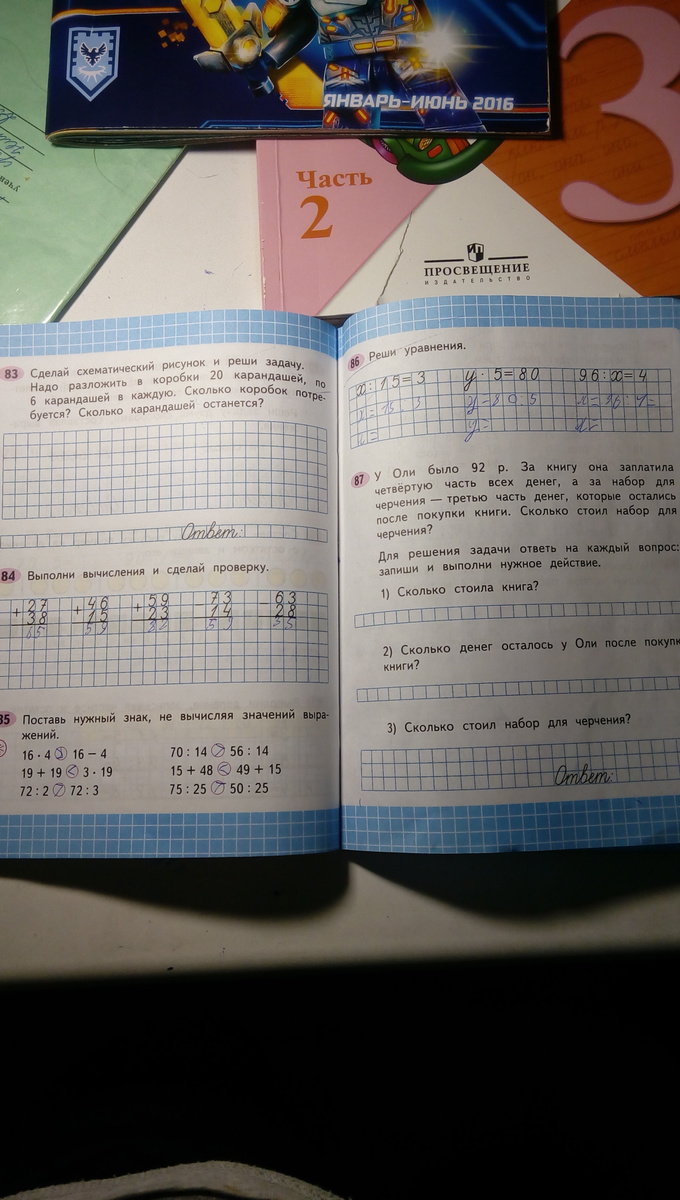 ЯНВАРЬ-ИЮНЬ 2016
Часть
2
3
ПРОСВЕЩЕНИЕ
ИЗДАТЕЛЬСТВО
83 Сделай схематический рисунок и реши задачу.
Надо разложить в коробки 20 карандашей, по
6 карандашей в каждую. Сколько коробок потре-
буется? Сколько карандашей останется?
Ответ:
84 Выполни вычисления и сделай проверку.
+27 +46 +59 -73 -63
38 15 23 14 28
85 Поставь нужный знак, не вычисляя значений выра-
жений.
16 · 4 16 – 4 70 : 14 > 56 : 14
19 + 19 < 3 · 19 15 + 48 < 49 + 15
72 : 2 > 72 : 3 75 : 25 > 50 : 25
86 Реши уравнения.
x : 15 = 3 y · 5 = 80 96 : x = 4
y = y = x =
87 У Оли было 92 р. За книгу она заплатила
четвёртую часть всех денег, а за набор для
черчения — третью часть денег, которые остались
после покупки книги. Сколько стоил набор для
черчения?
Для решения задачи ответь на каждый вопрос:
запиши и выполни нужное действие.
1) Сколько стоила книга?
2) Сколько денег осталось у Оли после покупк
книги?
3) Сколько стоил набор для черчения?
Ответ: